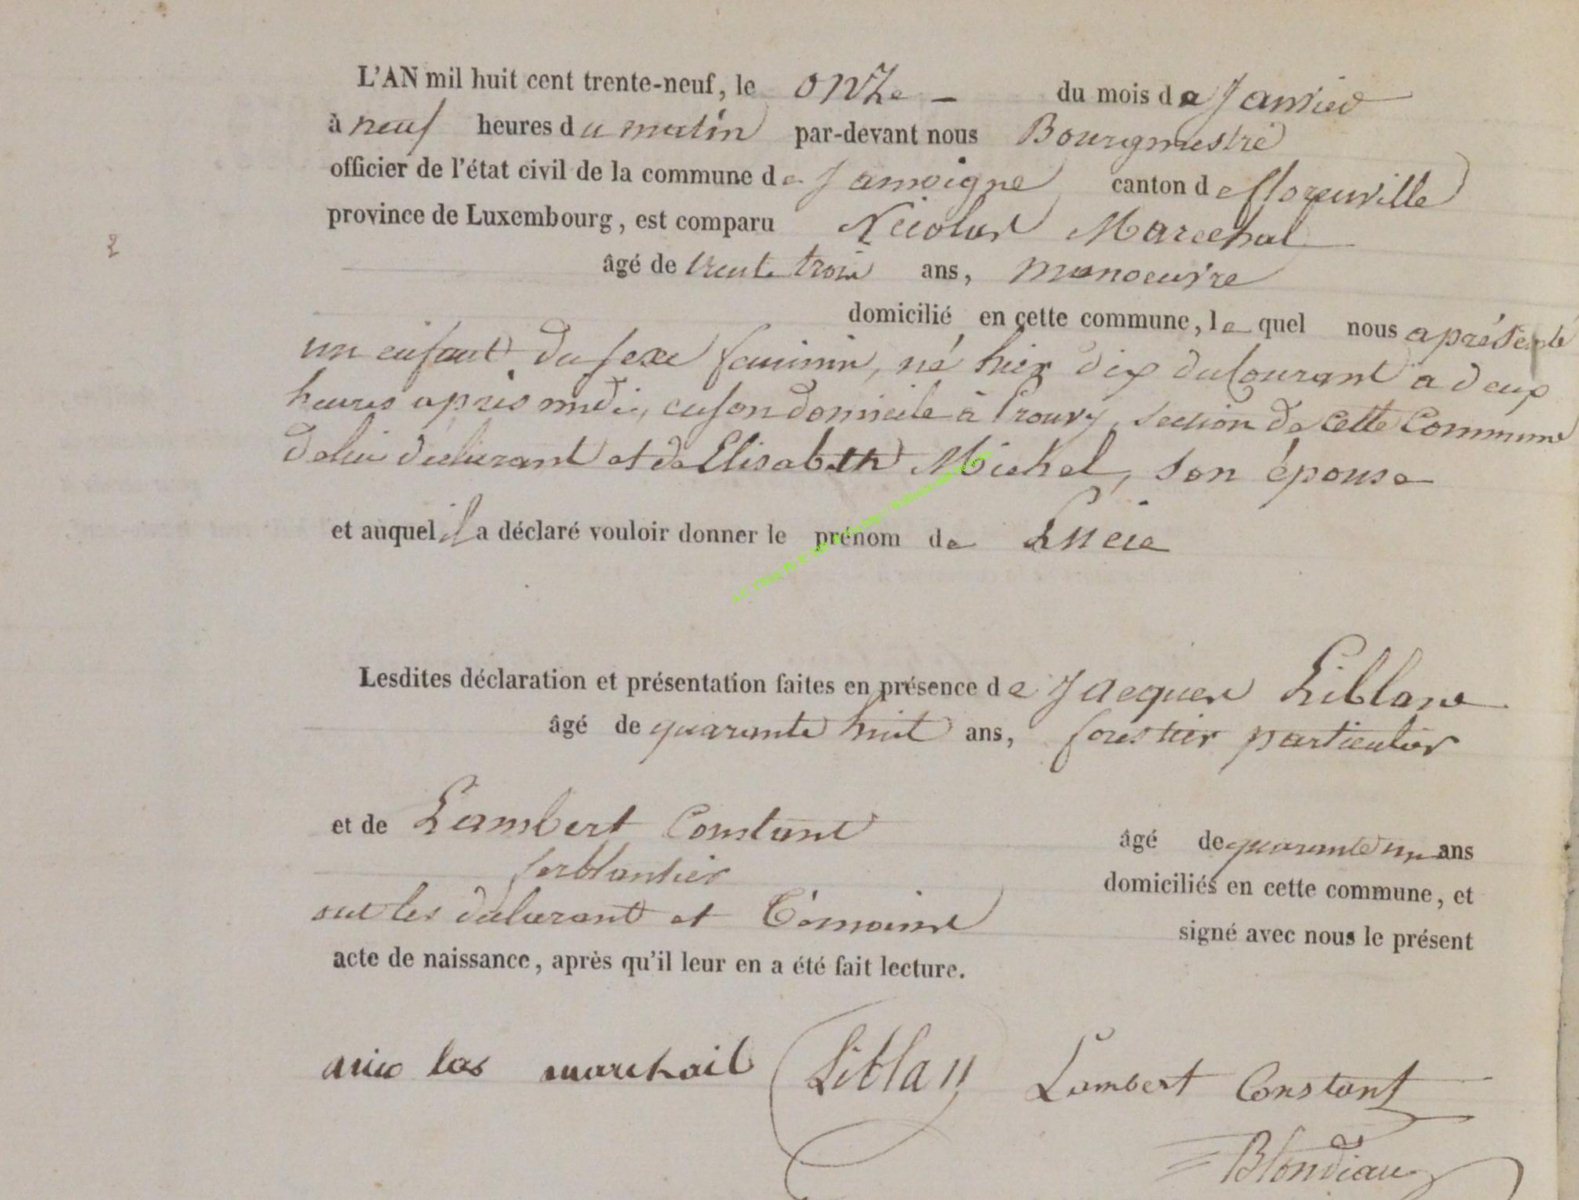 L'AN mil huit cent trente-neuf, le onze du mois de Janvier
à neuf heures du matin par-devant nous Bourgmestre
officier de l'état civil de la commune de Jamoigne canton de florenville
province de Luxembourg, est comparu Nicolas Marechal
âgé de trente trois ans, manoeuvre
domicilié en cette commune, le quel nous a présenté
un enfant du sexe feminin, né hier dix du courant a deux
heures après midi, en son domicile à Prouvy, section de cette Commune
de lui déclarant et de Elisabeth Michel, son épouse
et auquel il a déclaré vouloir donner le prénom de Lucie
Lesdites déclaration et présentation faites en présence de Jacques Liblanc
âgé de quarante huit ans, forestier particulier
et de Lambert Constant âgé de quarante un ans
ferblantier domiciliés en cette commune, et
ont les déclarant et Témoins signé avec nous le présent
acte de naissance, après qu'il leur en a été fait lecture.
nico las marechail Liblan Lambert Constant
Blondiau